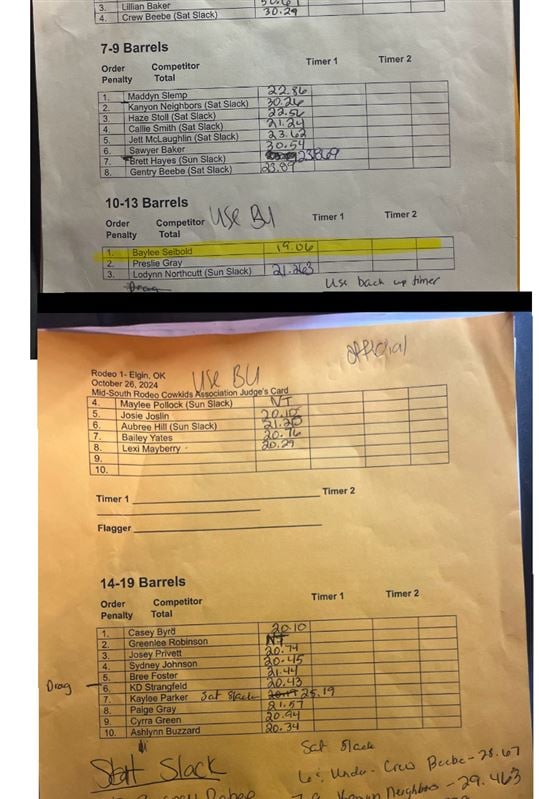 3. Lillian Baker
4. Crew Beebe (Sat Slack) 30.29
7-9 Barrels
Order Competitor Timer 1 Timer 2
Penalty Total
1. Maddyn Slemp 22.86
2. Kanyon Neighbors (Sat Slack) 30.26
3. Haze Stoll (Sat Slack) 22.56
4. Callie Smith (Sat Slack) 21.24
5. Jett McLaughlin (Sat Slack) 23.62
6. Sawyer Baker 30.54
7. Brett Hayes (Sun Slack) 23.869
8. Gentry Beebe (Sat Slack) 23.89
10-13 Barrels Use BU
Order Competitor Timer 1 Timer 2
Penalty Total
1. Baylee Seibold 19.06
2. Preslie Gray
3. Lodynn Northcutt (Sun Slack) 21.263
Drag Use back up timer
official
Rodeo 1- Elgin, OK Use BU
October 26, 2024
Mid-South Rodeo Cowkids Association Judge's Card
4. Maylee Pollock (Sun Slack) NT
5. Josie Joslin 20.10
6. Aubree Hill (Sun Slack)
7. Bailey Yates 20.76
8. Lexi Mayberry 20.29
9.
10.
Timer 1 Timer 2
Flagger
14-19 Barrels
Order Competitor Timer 1 Timer 2
Penalty Total
1. Casey Byrd 20.10
2. Greenlee Robinson NT
3. Josey Privett 20.74
4. Sydney Johnson 20.45
5. Bree Foster 21.44
Drag 6. KD Strangfeld 20.43
7. Kaylee Parker Sat Slack 25.19
8. Paige Gray 21.57
9. Cyrra Green 20.94
10. Ashlynn Buzzard 20.34
Sat Slack
Start Slack 6 & Under - Crew Beebe - 28.67
7-9 Kanyon Neighbors - 29.463